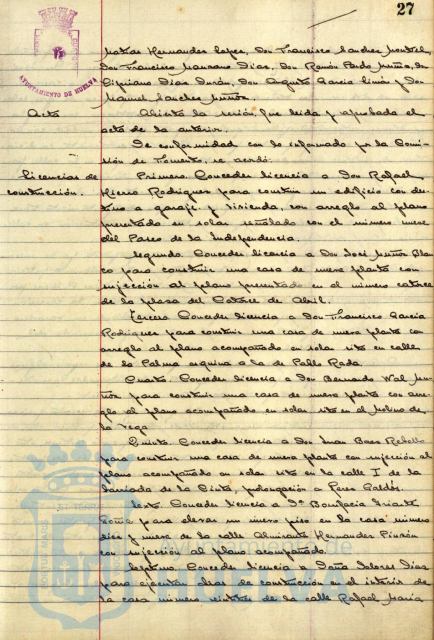 27
AYUNTAMIENTO DE HUELVA
Matías Hernandez Lopez, Don Francisco Sanchez Montiel,
Don Francisco Manzano Dias, Don Ramón Pardo Muñoz, Don
Cipriano Dias Durán, Don Agustín Garcia Limón y Don
Manuel Sanchez Muñoz.
Acta
Abierta la sesión, fue leida y aprobada el
acta de la anterior.
De conformidad con lo informado por la Comi-
sión de Fomento, se acordó:
Licencias de
construcción.
Primero. Conceder licencia a Don Rafael
Hierro Rodriguez para construir un edificio con des-
tino a garaje y vivienda, con arreglo al plano
presentado en solar señalado con el número nueve
del Paseo de la Independencia.
Segundo. Conceder licencia a Don José Muñoz Blan-
co para construir una casa de nueva planta con
sujección al plano presentado en el número catorce
de la plaza del Catorce de Abril.
Tercero. Conceder licencia a Don Francisco Garcia
Rodriguez para construir una casa de nueva planta con
arreglo al plano acompañado en solar sito en calle
de la Palma esquina a la de Pablo Rada.
Cuarto. Conceder licencia a Don Bernardo Wal Mu-
ñoz para construir una casa de nueva planta con arre-
glo al plano acompañado en solar sito en el Molino de
la Vega.
Quinto. Conceder licencia a Don Juan Baez Rebollo
para construir una casa de nueva planta con sujección al
plano acompañado en solar sito en la calle I de la
barriada de la Cinta, prolongación a Perez Galdós.
Sexto. Conceder licencia a Dª Bonifacia Iriarte
para elevar un nuevo piso en la casa número
diez y nueve de la calle Almirante Hernandez Pinzón
con sujección al plano acompañado.
Septimo. Conceder licencia a Doña Dolores Dias
para ejecutar obras de construcción en el interior de
la casa número veintitres de la calle Rafael Maria